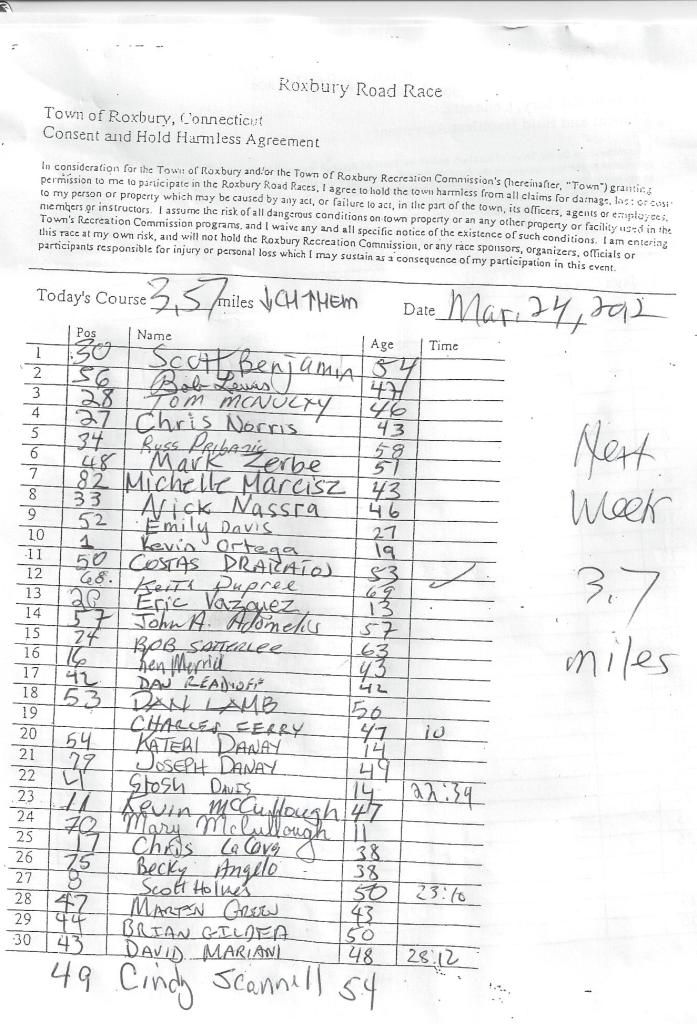 Roxbury Road Race
Town of Roxbury, Connecticut
Consent and Hold Harmless Agreement
In consideration for the Town of Roxbury and/or the Town of Roxbury Recreation Commission's (hereinafter, "Town") granting
permission to me to participate in the Roxbury Road Races, I agree to hold the town harmless from all claims for damage, loss or cost
to my person or property which may be caused by any act, or failure to act, in the part of the town, its officers, agents or employees,
members or instructors. I assume the risk of all dangerous conditions on town property or an any other property or facility used in the
Town's Recreation Commission programs, and I waive any and all specific notice of the existence of such conditions. I am entering
this race at my own risk, and will not hold the Roxbury Recreation Commission, or any race sponsors, organizers, officials or
participants responsible for injury or personal loss which I may sustain as a consequence of my participation in this event.
Today's Course 3.57 miles Date Mar. 24, 2012
Pos Name Age Time
1 30 Scott Benjamin 54
2 56 Bob Lewis 47
3 28 TOM MCNULTY 46
4 27 Chris Norris 43
5 34 Russ Pribanic 58
6 48 Mark Zerbe 51
7 82 Michelle Marcisz 43
8 33 Nick Nassra 46
9 52 Emily Davis 27
10 1 Kevin Ortega 19
11 50 COSTAS 53
12 68. Keith Dupree 69
13 20 Eric Vazquez 13
14 57 John A. Adomelis 57
15 24 BOB SATTERLEE 63
16 16 Ken Merrill 43
17 42 DAN 42
18 53 DAN LAMB 50
19 CHARLES FERRY 47 10
20 54 KATERI DANAY 14
21 79 JOSEPH DANAY 49
22 Stosh DAVIS 14 22:39
23 11 Kevin McCullough 47
24 70 Mary McCullough 11
25 17 Chris La Cava 38
26 75 Becky Angelo 38
27 8 Scott Holmes 50 23:10
28 47 MARTIN GREEN 43
29 44 BRIAN GILDEA 50
30 43 DAVID MARIANI 48 28:12
49 Cindy Scannell 54
Next
Week
3.7
miles